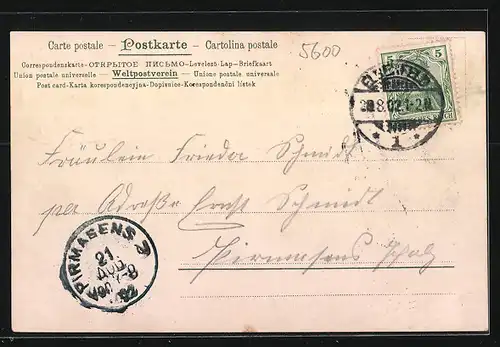 Carte postale – Postkarte – Cartolina postale
Correspondenzkarte–ОТКРЫТОЕ ПИСЬМО–Levelezö-Lap–Briefkaart
Union postale universelle – Weltpostverein – Unione postale universale
Post card–Karta korespondencyjna–Dopisnice–Korespondenční lístek
5600
5
5
1-2N
* 1 *
Fräulein Frieda Schmidt
per Adreße Ernst Schmidt
Pirmasens
Pfalz
PIRMASENS
21
AUG
02